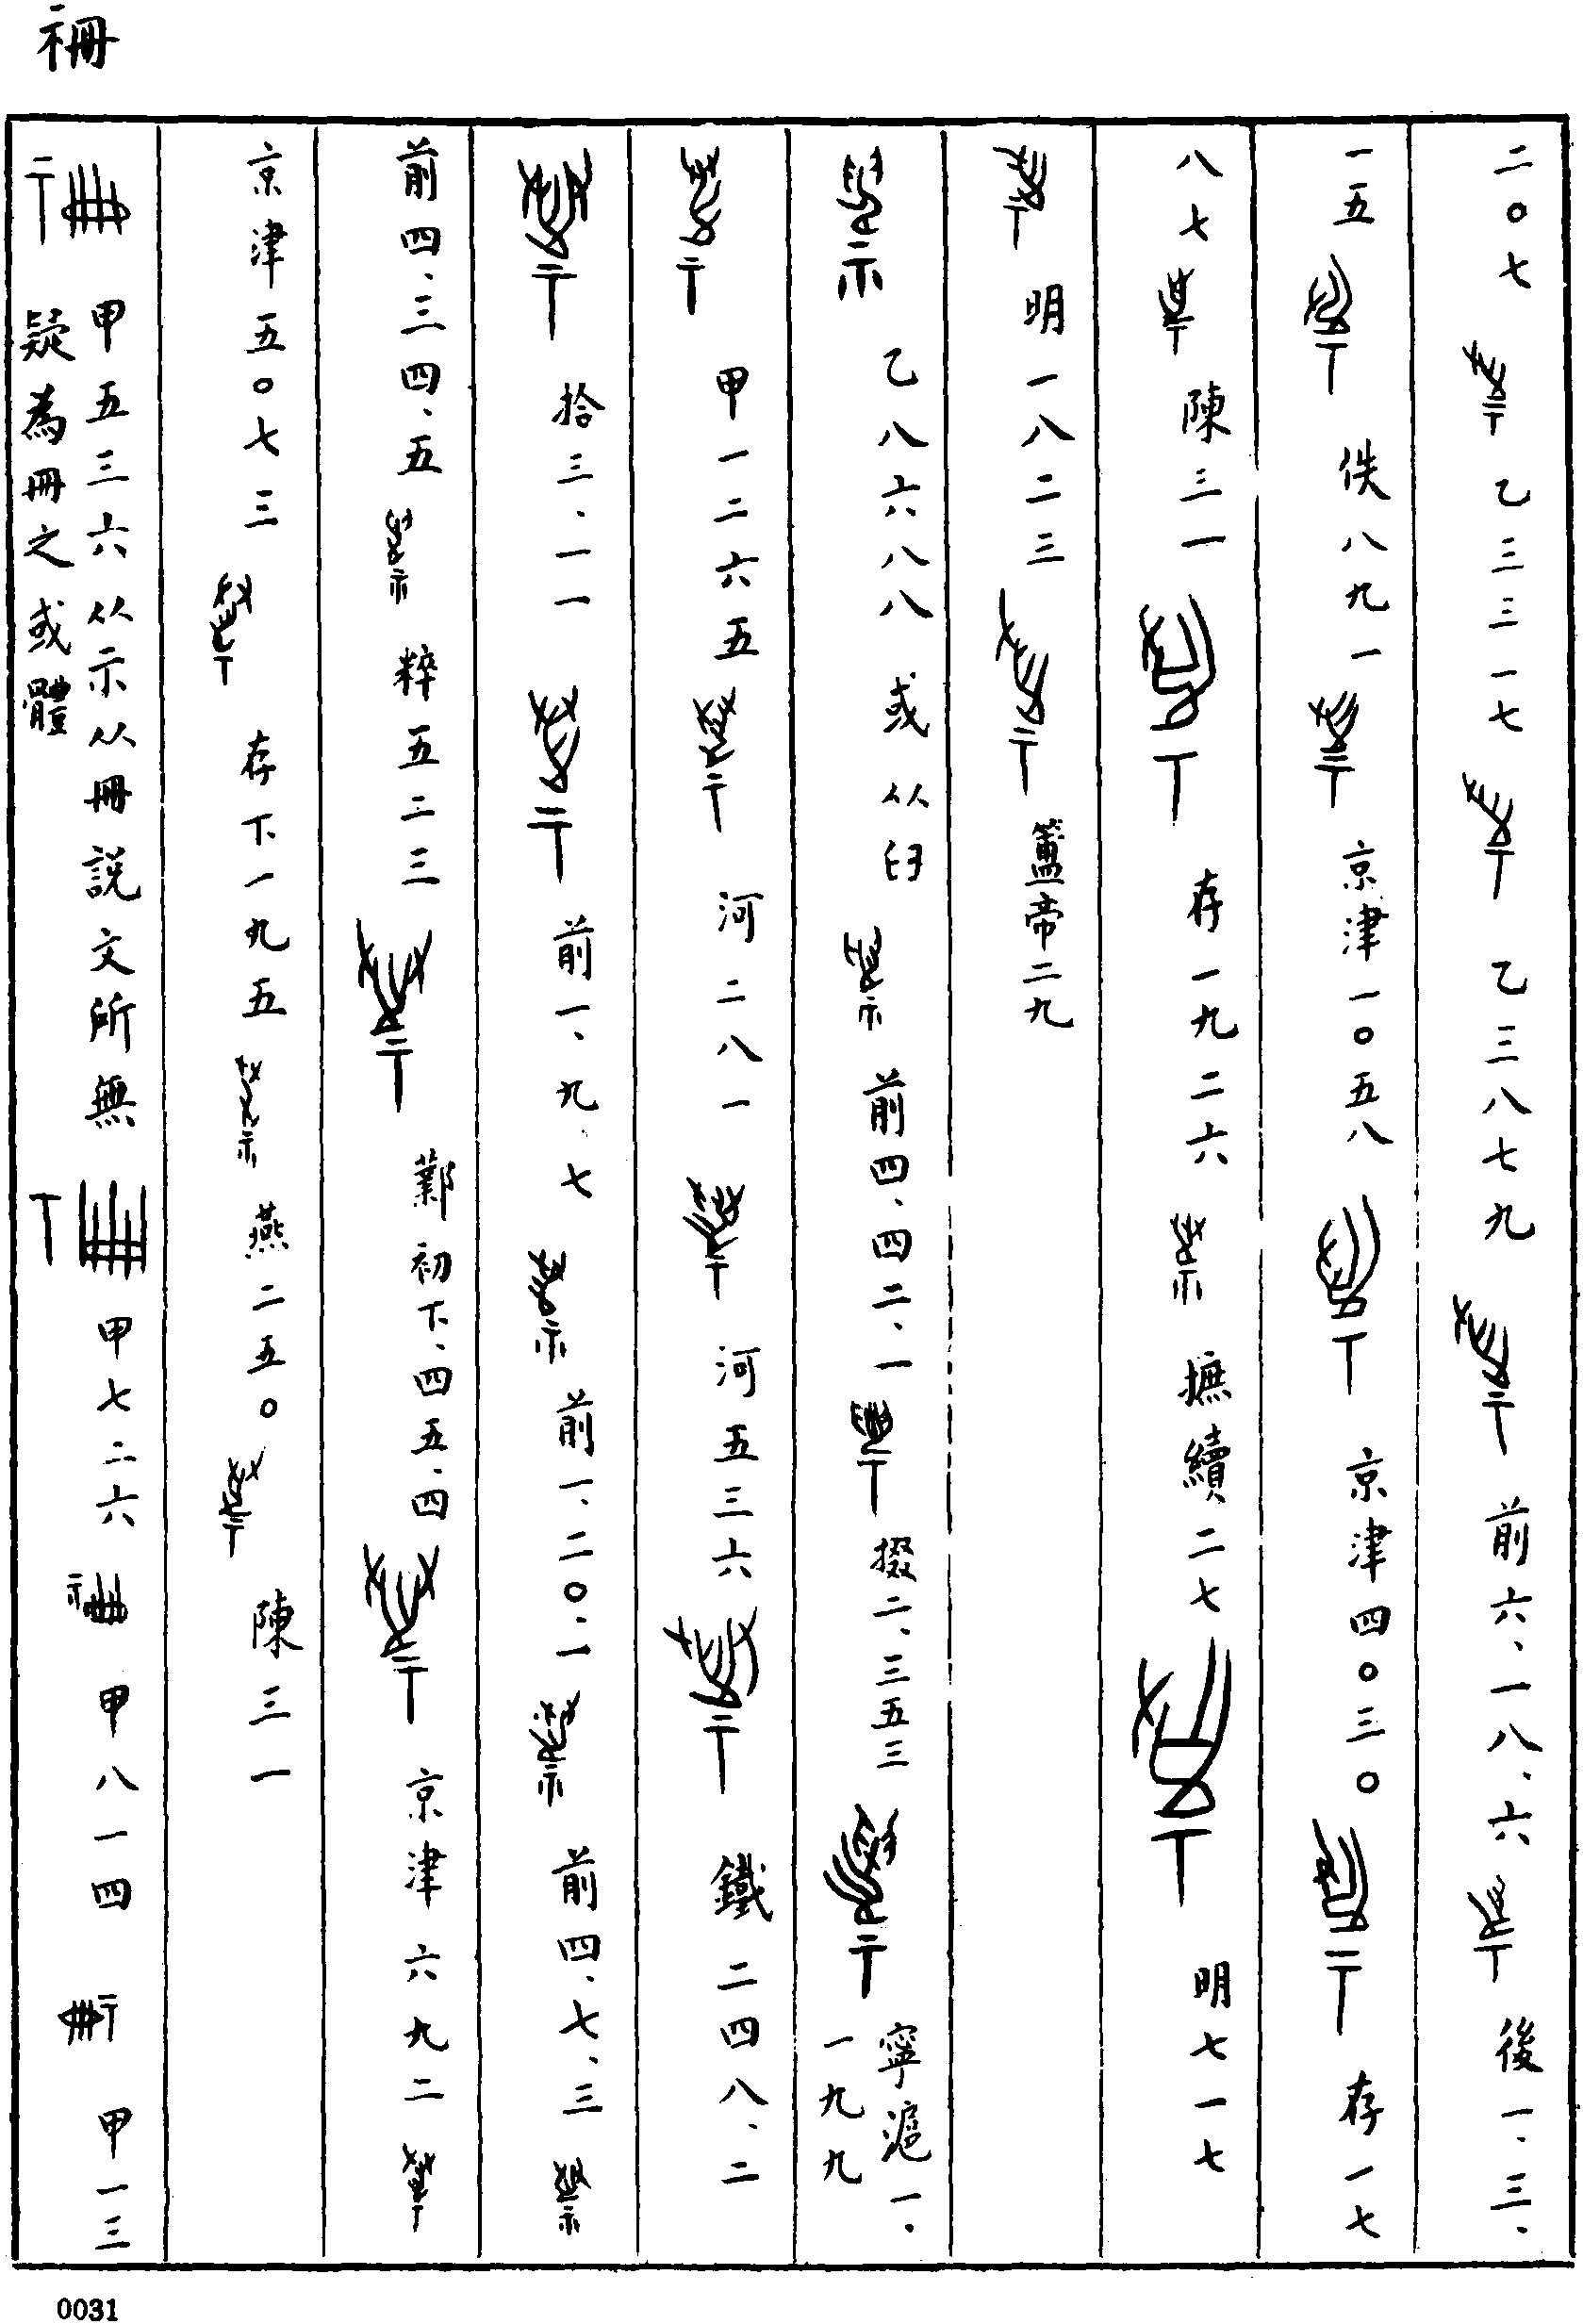 𥙍
二〇七 乙三三一七 乙三八七九 前六、一八、六 後一、三、
一五 佚八九一 京津一〇五八 京津四〇三〇 存一七
八七 陳三一 存一九二六 摭續二七 明七一七
明一八二三 簠帝二九
乙八六八八 或从𦥑 前四、四二、一 掇二、三五三 寧滬一、一九九
甲一二六五 河二八一 河五三六 鐵二四八、二
拾三、一一 前一、九、七 前一、二〇、一 前四、七、三
前四、三四、五 粹五二三 鄴初下、四五、四 京津六九二
京津五〇七三 存下一九五五 燕二五〇 陳三一
甲五三六从示从冊説文所無疑為冊之或體 甲七二六 甲八一四 甲一三
0031